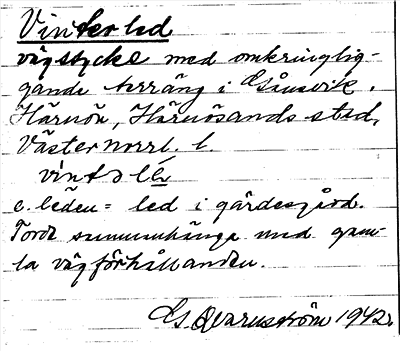 Vinterled
vägstycke med omkringlig-
gande terräng i Gånsvik,
Härnön, Härnösands stad,
Västernorrl. l.
vintəlé
e. leden = led i gärdesgård.
Torde sammanhänga med gam-
la vägförhållanden.
G. Qvarnström 1942.